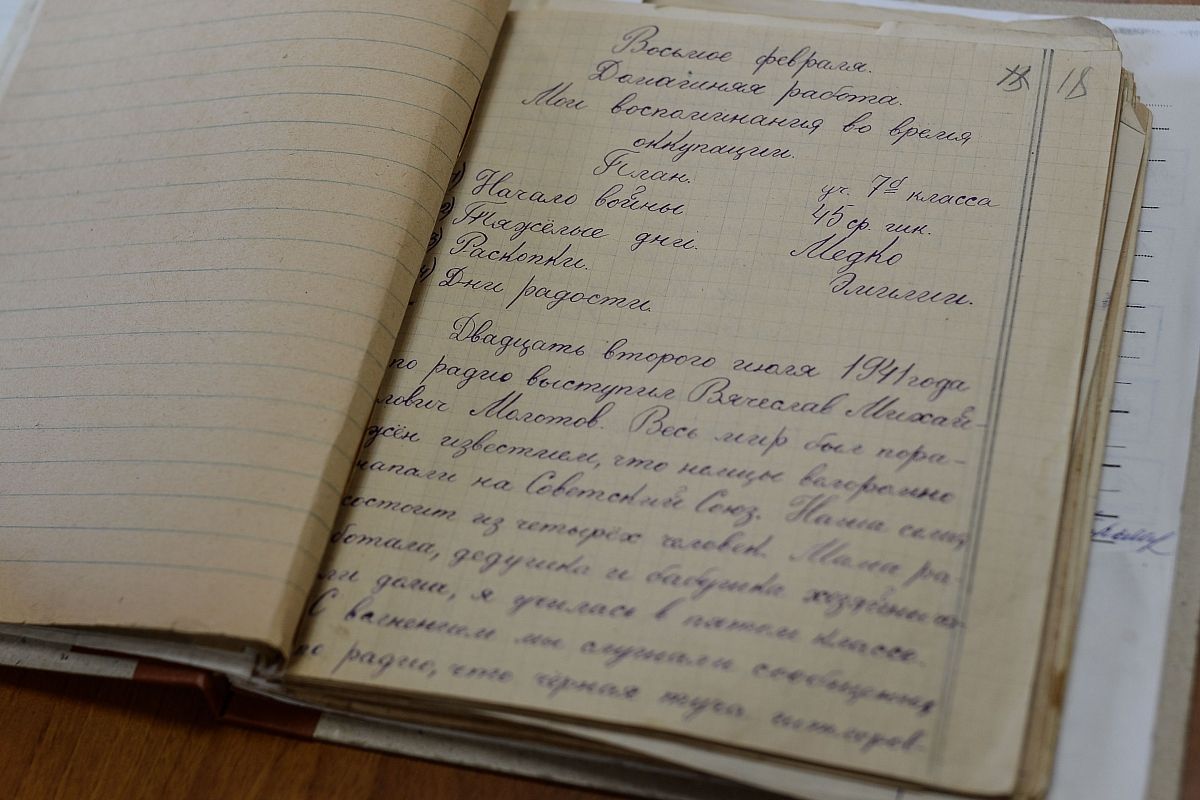 Восьмое февраля.
18 18
Домашняя работа.
Мои воспоминания во время
оккупации.
План.
уч. 7д класса
1) Начало войны
45 ср. гик.
2) Тяжёлые дни.
Медко
3) Раскопки.
Эмилии.
4) Дни радости.
Двадцать второго июля 1941 года
по радио выступил Вячеслав Михай-
лович Молотов. Весь мир был пора-
жён известием, что немцы вероломно
напали на Советский Союз. Наша семья
состоит из четырёх человек. Мама ра-
ботала, дедушка и бабушка хозяйнича-
ли дома, я училась в пятом классе.
С волнением мы слушали сообщения
по радио, что чёрная туча гитлеров-